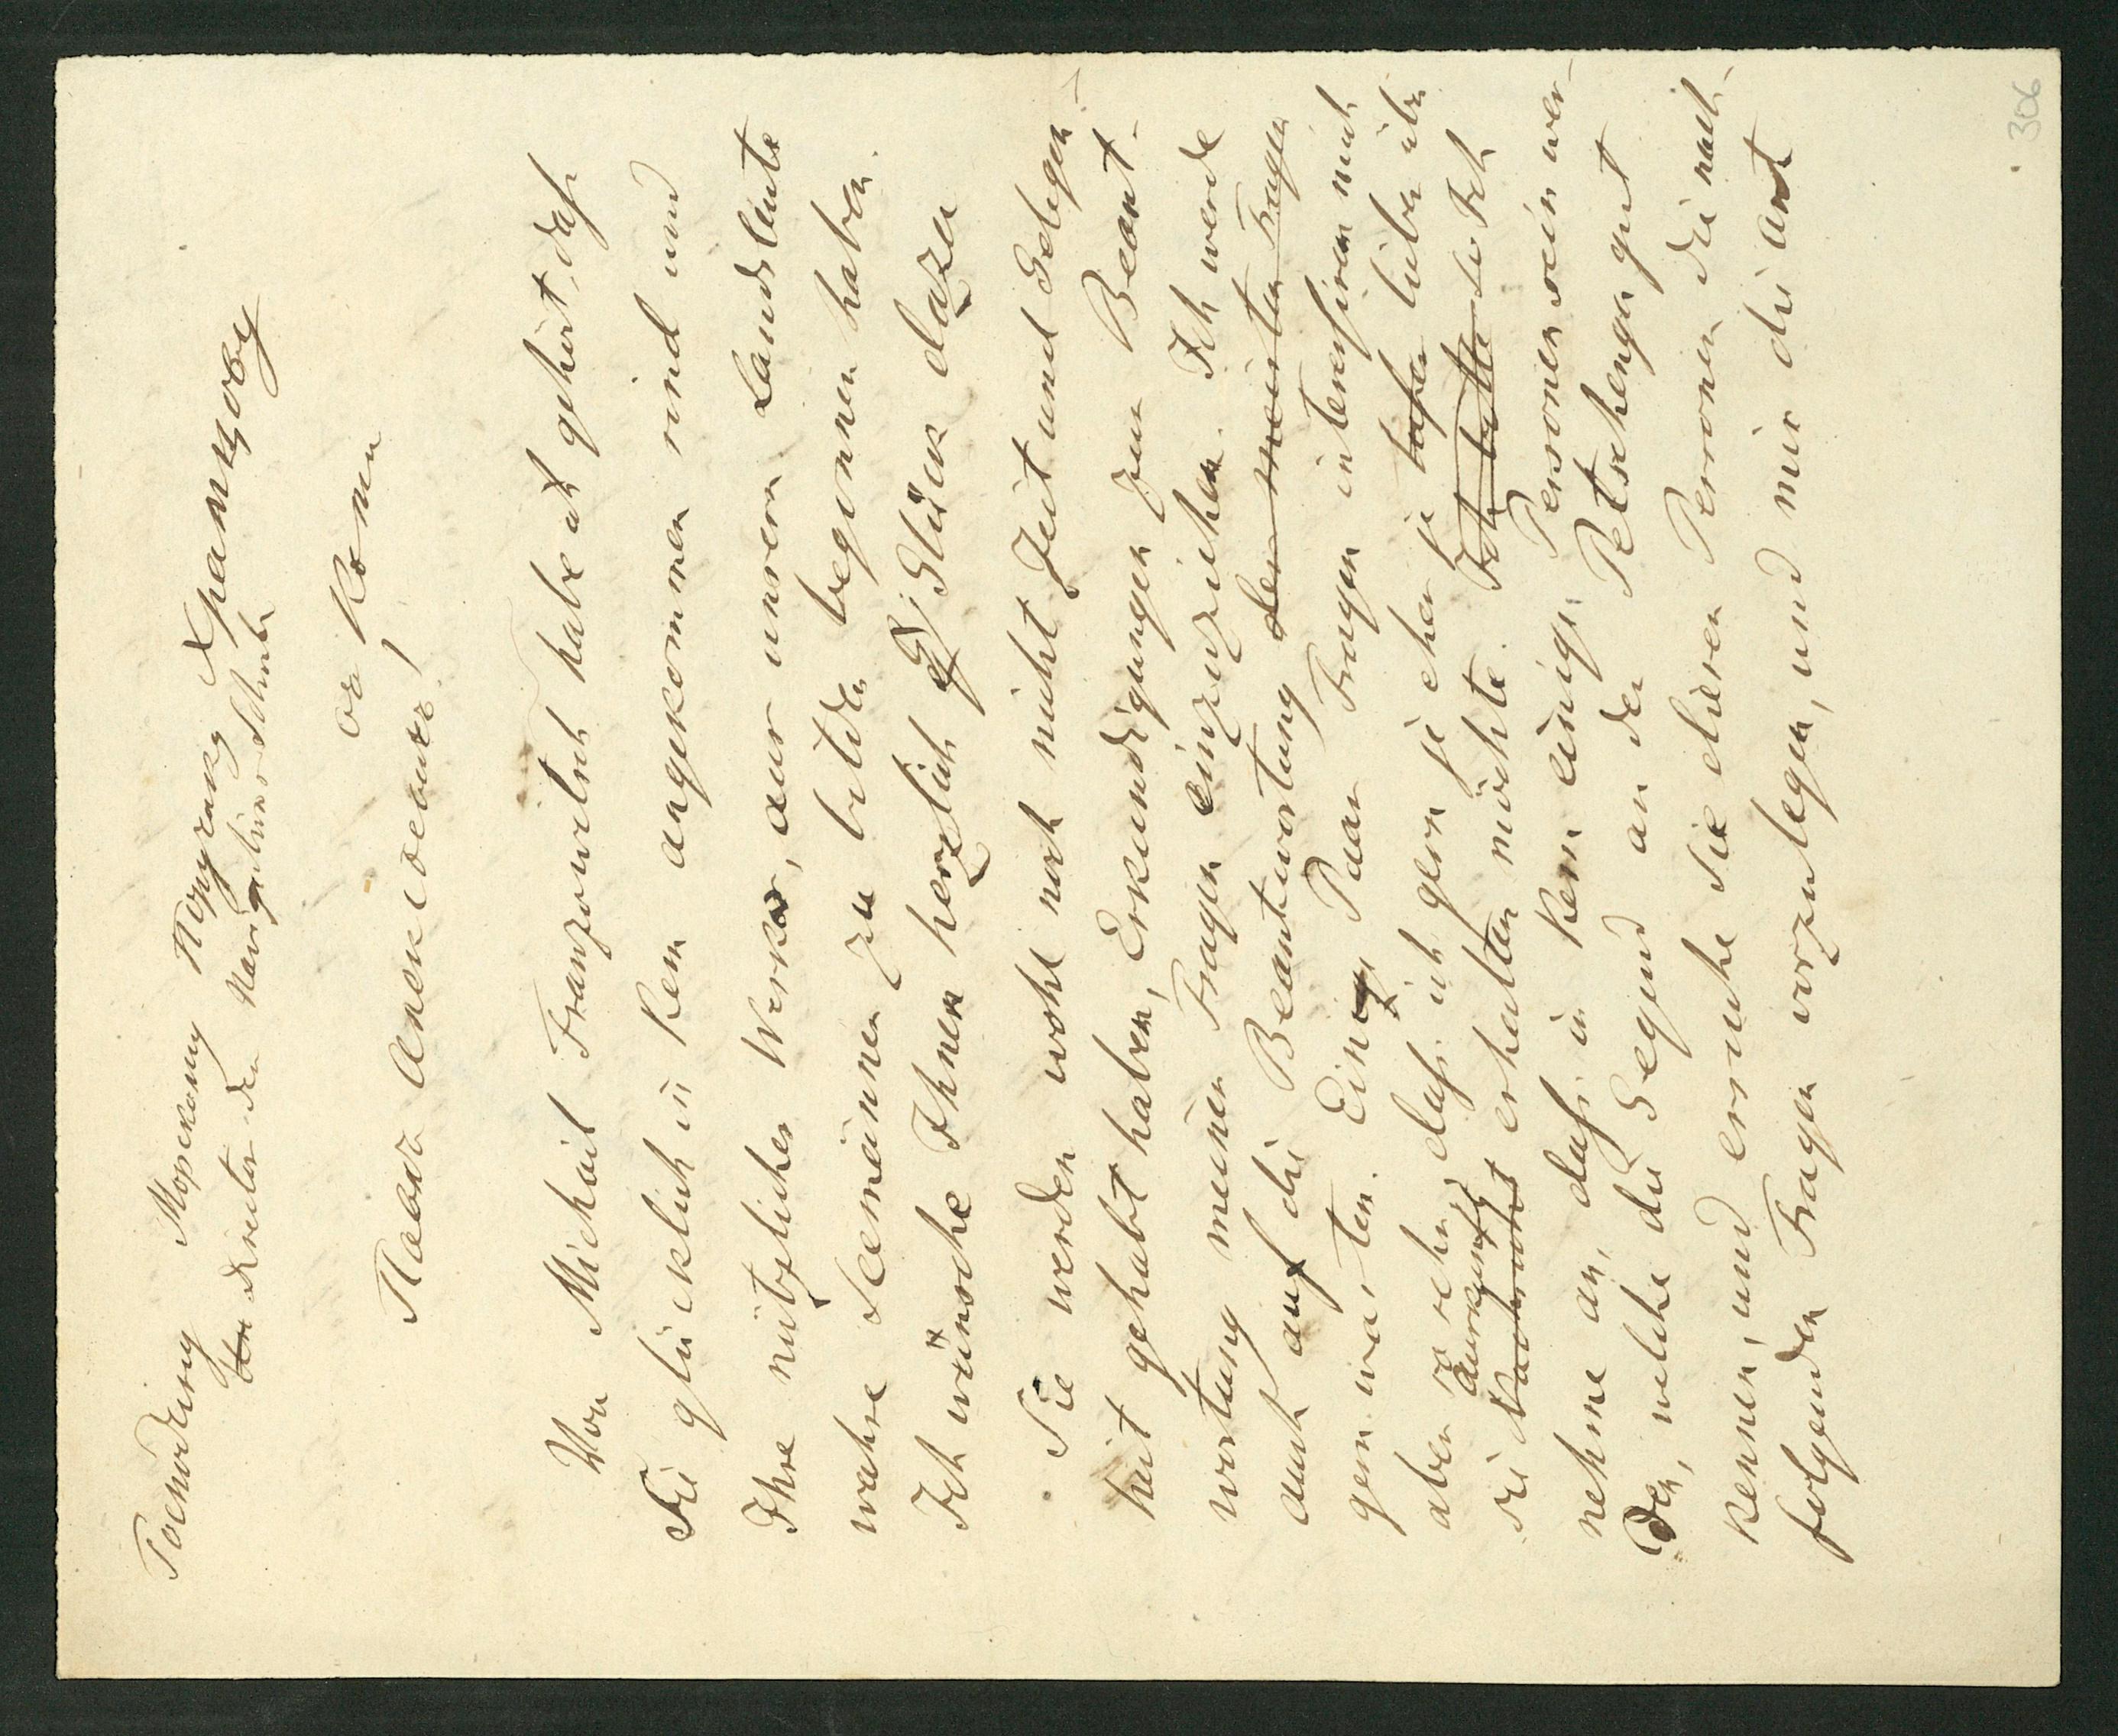 306
Господину Морскому Поручику Гранкову
Den Director der Navigations Schule
въ Коми
Павелъ Алексѣевичъ!
Von Michail Franzowitsch habe ich gehört, dass
Sie glücklich in Kem angekommen sind und
Ihre nützliches Werk, aus unsern Landsleute
wahre Seemänner zu bilden begonnen haben.
Ich wünsche Ihnen herzlich Glück dazu
Sie werden wohl noch nicht Zeit und Gelegen-
heit gehabt haben, Erkundigungen zur Beant-
wortung meiner Fragen einzuziehen. Ich werde
auch auf die Beantwortung der meisten Fragen
gern warten. Einige Paar Fragen interessiren mich
aber so sehr, dass ich gern je eher je lieber
Auskunft
sie Nachricht erhalten möchte. Ich bitte Ich
nehme an, dass in Kem einige Personen sein wer-
den, welche die Gegend an der Petschenga gut
kennen, und ersuche Sie diesen Personen die nach-
folgenden Fragen vorzulegen, und mir die Ant